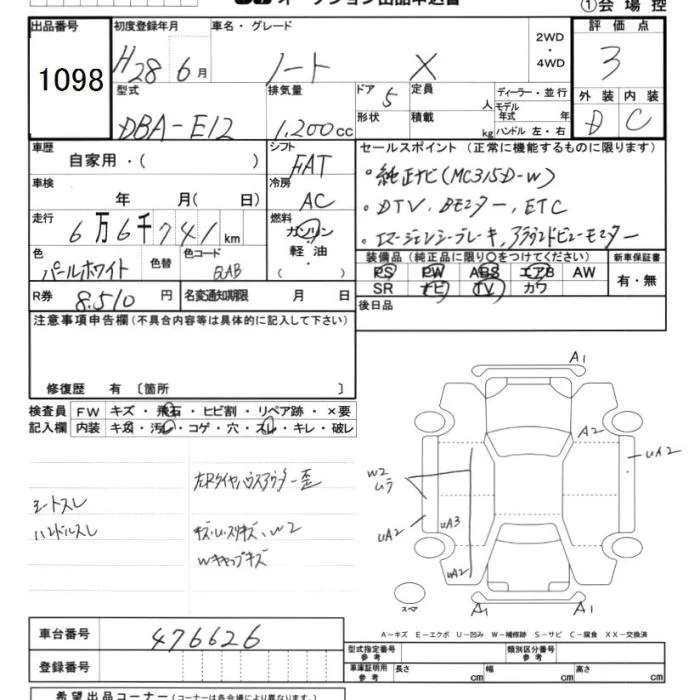 オークション出品申込書
①会場控
出品番号
1098
初度登録年月
H28 6月
車名・グレード
ノート X
2WD
・
4WD
評価点
3
外装 内装
D C
型式
DBA-E12
排気量
1,200cc
ドア
5
定員
人
形状
積載
kg
ディーラー・並行
モデル
年式 年
ハンドル 左・右
車歴
自家用・( )
シフト
FAT
セールスポイント (正常に機能するものに限ります)
・純正ナビ(MC315D-W)
・DTV、Bモニター、ETC
・エマージェンシーブレーキ、アラウンドビューモニター
車検
年 月( 日)
冷房
AC
走行
6万6千741km
燃料
ガソリン
・
軽油
・
( )
色
パールホワイト
色替
色コード
QAB
装備品 (純正品に限り○をつけてください)
PS PW ABS エアB AW
SR ナビ TV カワ
新車保証書
有・無
R券
8,510円
名変通知期限 月 日
後日品
注意事項申告欄(不具合内容等は具体的に記入して下さい)
修復歴 有 〔箇所 〕
検査員
記入欄
FW キズ・飛石・ヒビ割・リペア跡・×要
内装 キズ・汚レ・コゲ・穴・スレ・キレ・破レ
シートスレ
ハンドルスレ
左Rタイヤハウスアウター歪
キズ・U・スリキズ、W2
Wキャップキズ
A1
A2
UA2
W2
ムラ
UA2
UA3
UA2
スペア
A1
A1
A-キズ E-エクボ U-凹み W-補修跡 S-サビ C-腐食 XX-交換済
車台番号
476626
登録番号
型式指定番号
参考
類別区分番号
参考
車庫証明用
参考
長さ cm 幅 cm 高さ cm
希望出品コーナー(コーナーは各会場により異なります。)